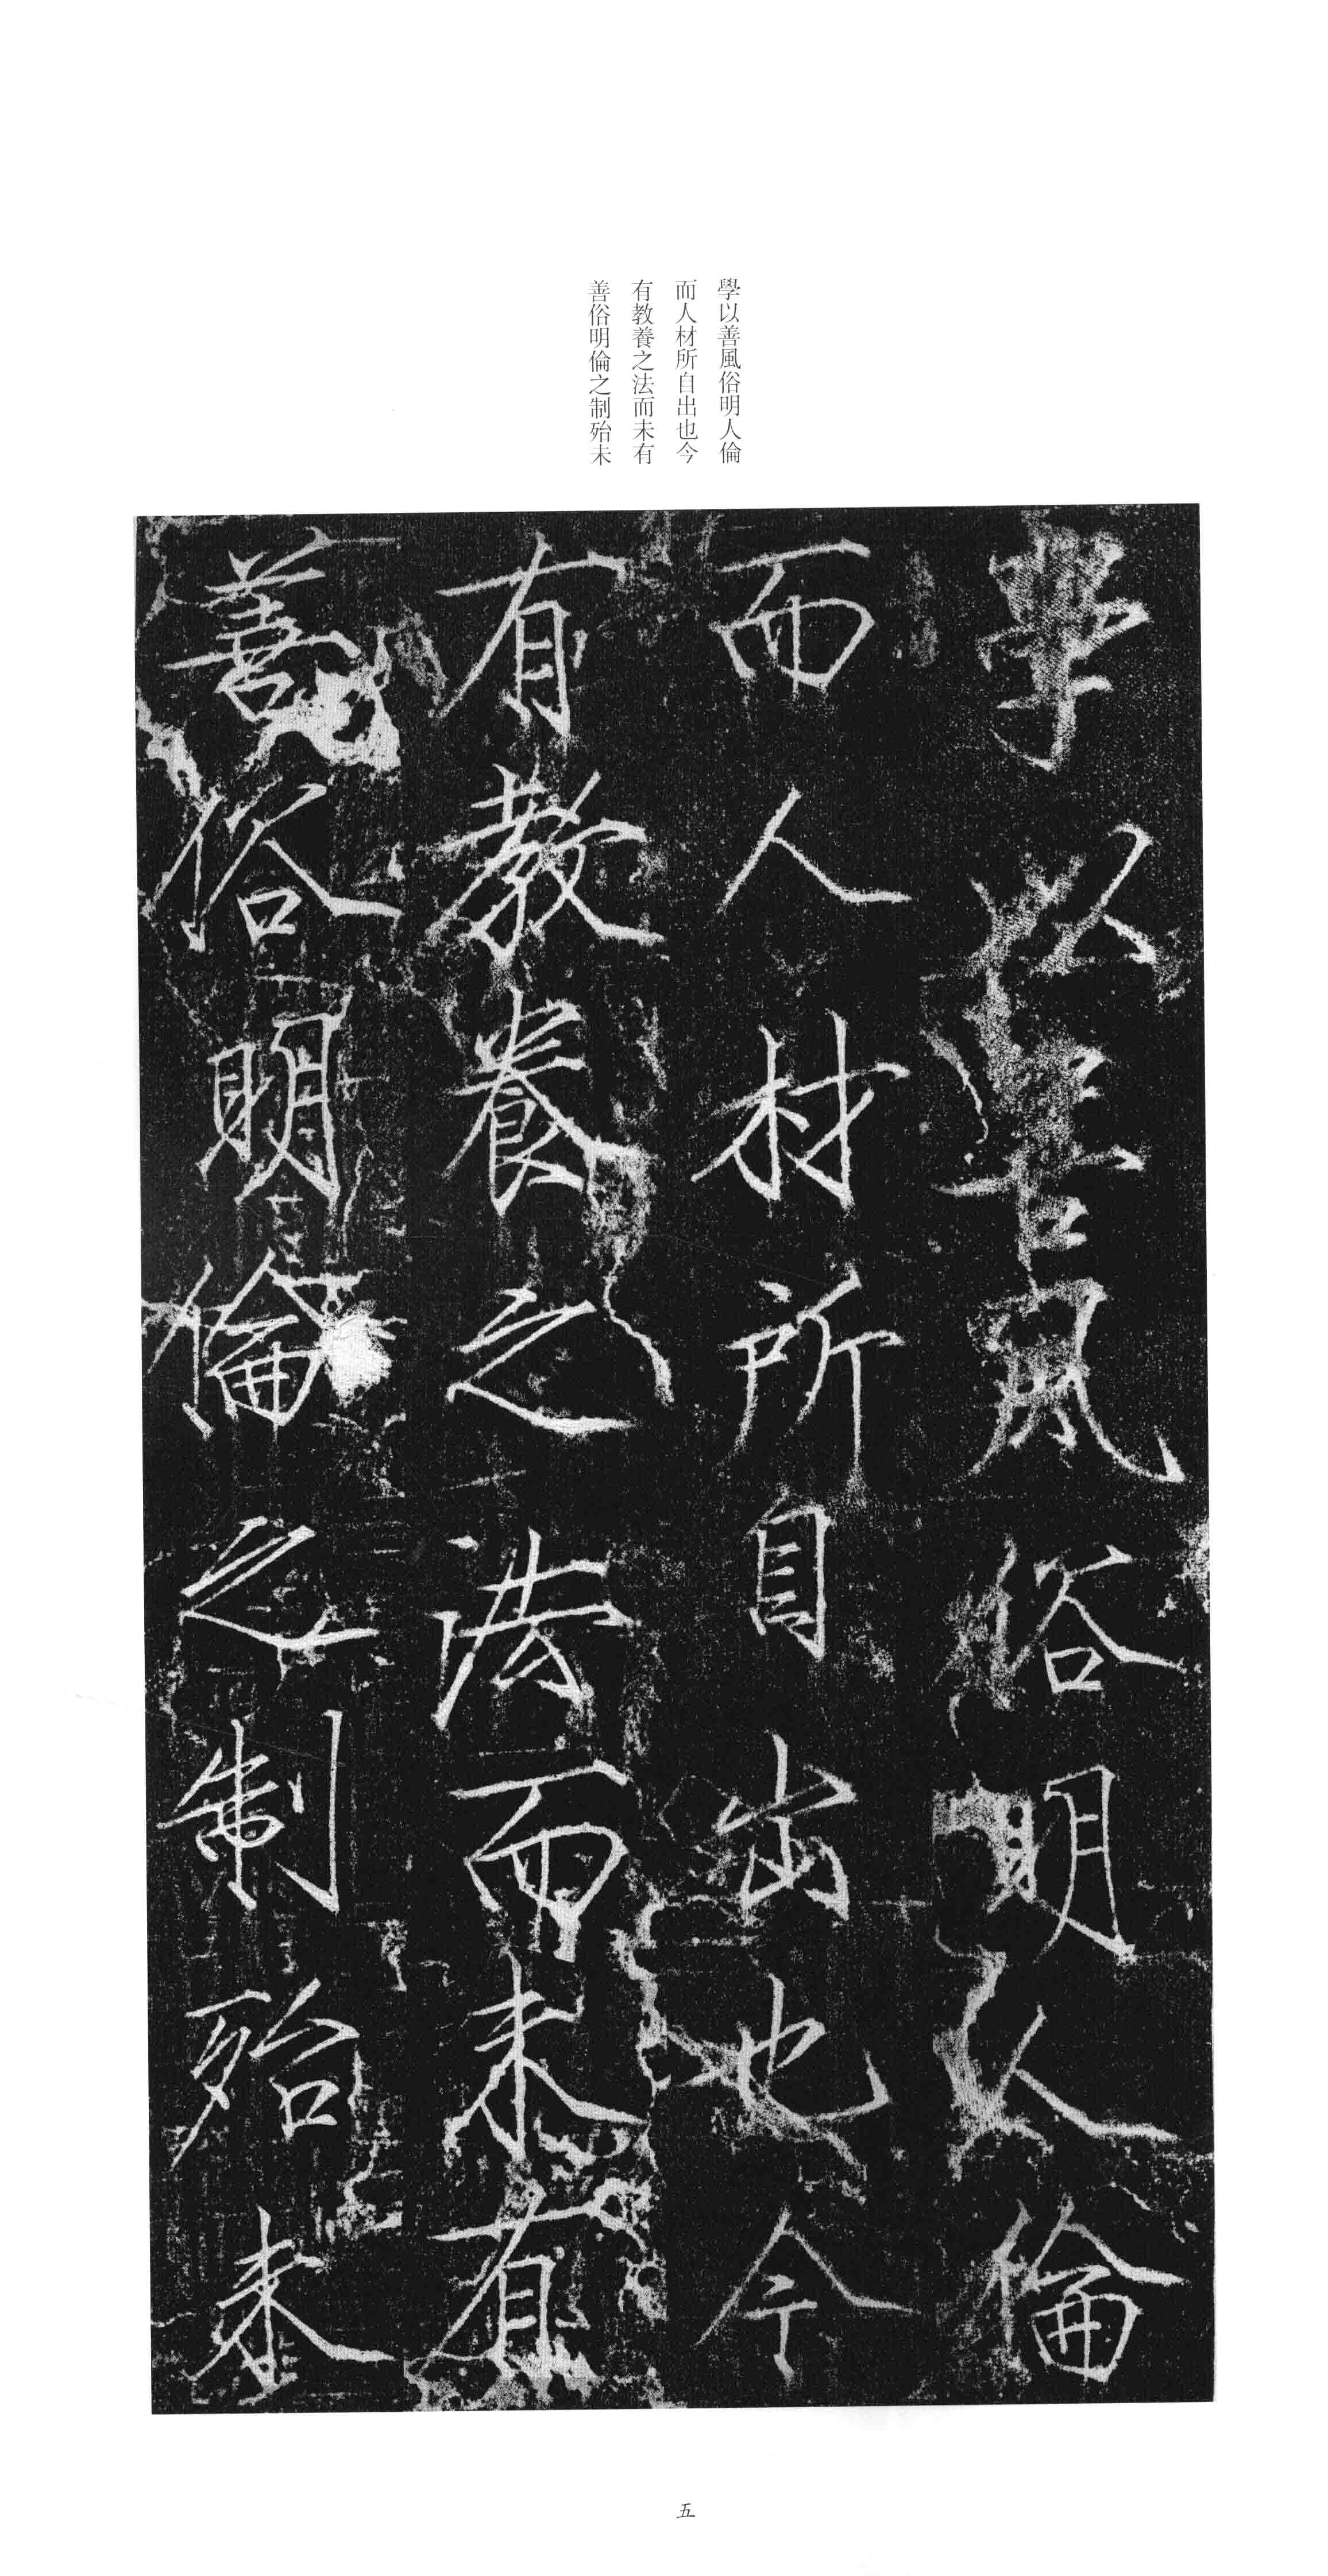 學以善風俗明人倫
而人材所自出也今
有教養之法而未有
善俗明倫之制殆未
學以善風俗明人倫
而人材所自出也今
有教養之法而未有
善俗明倫之制殆未
五